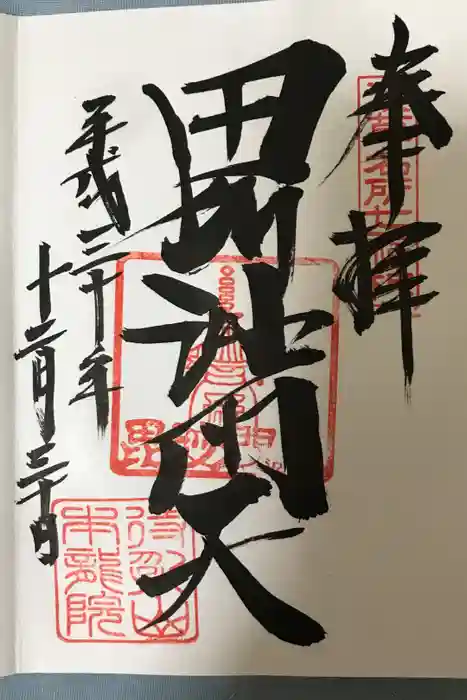 奉拝
毘沙門天
平成三十年
十二月三十日
待乳山
本龍院